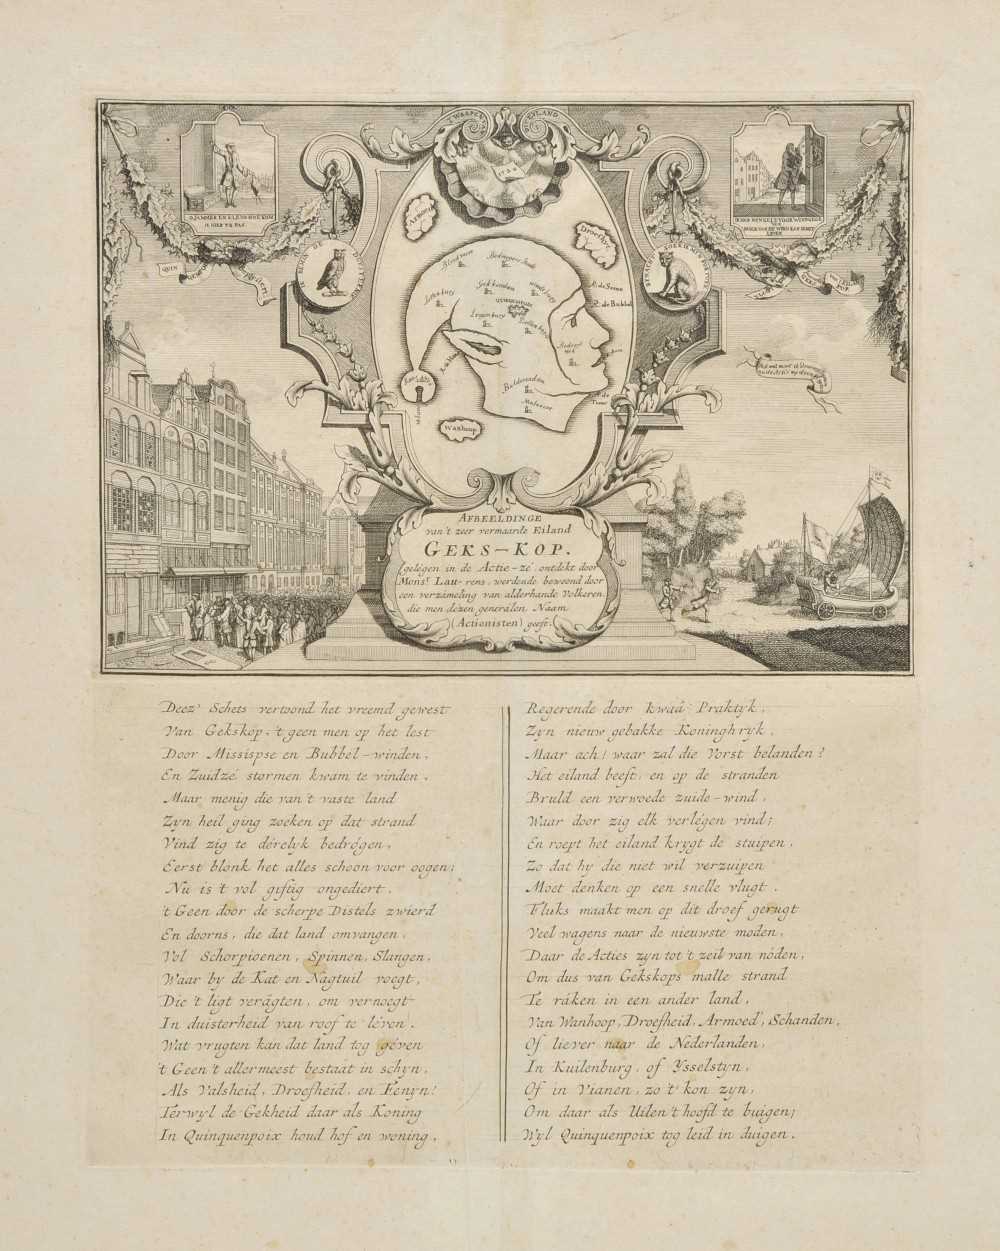 'T WAAPEN
EYLAND
1720
ARMOED
Droefheyt
Wanhoop
Blind
Geks
Lose burg
Bubbel
Ik BEMIN DE DUYSTERNIS
QUIN
AFBEELDINGE
van't zeer vermaarde Eiland
GEKS-KOP.
gelegen in de Actie-zé, ontdekt door
Monsr. Lau-rens, werdende bewoond door
een verzameling van alderhande Volkeren,
die men dezen generalen Naam
(Actionisten) geeft.
Deez' Schets vertoond het vreemd gewest
Van Gekskop, 't geen men op het lest
Door Missispse en Bubbel-winden,
En Zuidze stormen kwam te vinden,
Maar menig die van 't vaste land
Zyn heil ging zoeken op dat strand
Vind zig te dérelyk bedrógen,
Eerst blonk het alles schoon voor oogen;
Nu is 't vol giftig ongediert,
't Geen door de scherpe Distels zwierd
En doorns, die dat land omvangen,
Vol Schorpioenen, Spinnen, Slangen,
Waar by de Kat en Nagtuil voegt,
Die 't ligt verágten, om vernoegt
In duisterheid van roof te léven.
Wat vrugten kan dat land tog géven
't Geen 't allermeest bestaat in schyn,
Als Valsheid, Droefheid, en Fenyn!
Terwyl de Gekheid daar als Koning
In Quinquenpoix houd hof en woning,
Regerende door kwaâ Praktyk,
Zyn nieuw gebakke Koninghryk,
Maar ach! waar zal die Vorst belanden?
Het eiland beeft, en op de stranden
Bruld een verwoede zuide-wind,
Waar door zig elk verlégen vind;
En roept het eiland krygt de stuipen,
Zo dat hy die niet wil verzuipen
Moet denken op een snelle vlugt.
Fluks maakt men op dit droef gerugt
Veel wagens naar de nieuwste moden,
Daar de Acties zyn tot 't zeil van nóden,
Om dus van Gekskops malle strand
Te ráken in een ander land,
Van Wanhoop, Droefheid, Armoed', Schanden,
Of liever naar de Néderlanden,
In Kuilenburg, of Ysselstyn,
Of in Vianen, zo 't kon zyn,
Om daar als Uilen 't hoofd te buigen;
Wyl Quinquenpoix tog leid in duigen.